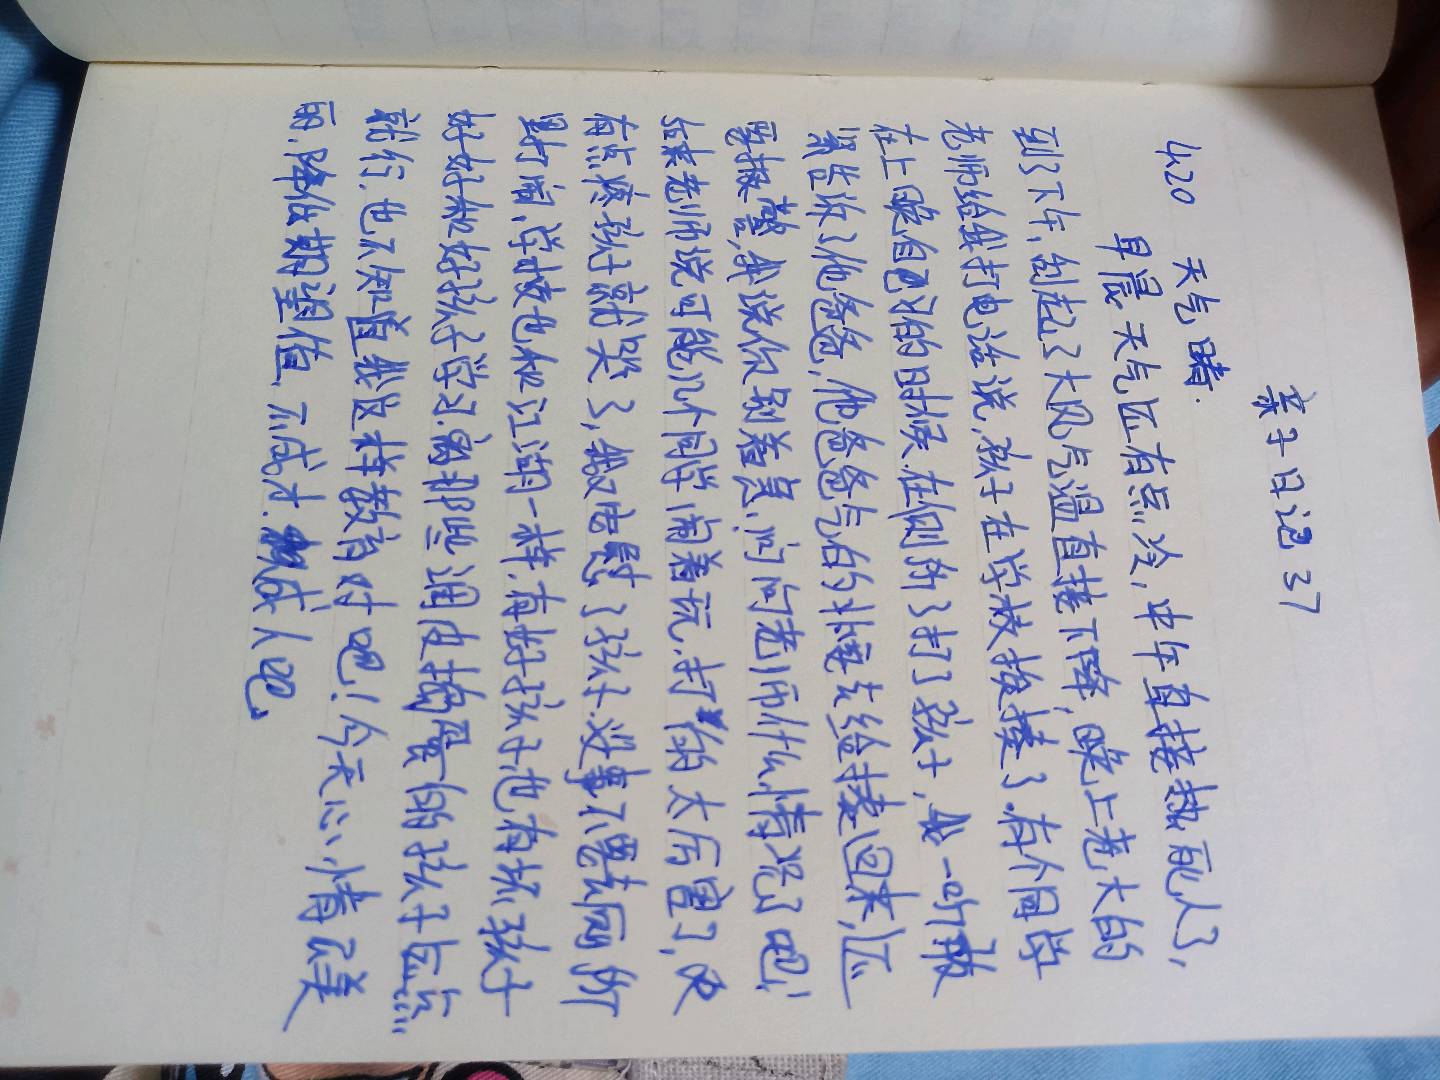 亲子日记 37
4.20 天气晴.
早晨天气还有点冷，中午直接热死人了，
到了下午，刮起了大风气温直接下降，晚上老大的
老师给我打电话说，孩子在学校挨揍了.有个同学
在上晚自习的时候.在厕所了打了孩子，我一听
紧告诉了他爸爸，他爸爸气的补要去给揍回来，还
要报警，我说你别着急，问问老师什么情况了吧！
结果老师说可能几个同学闹着玩.打的太厉害了，
有点疼孩子就哭了，我又安慰了孩子.没事不要去厕所
跟打闹，学校也和江湖一样.有好孩子也有坏孩子
好好和好孩子学习.离那些调皮捣蛋的孩子远点
就行.也不知道我这样教育对吧！今天心情
的.降低期望值，不成才.就成人吧.